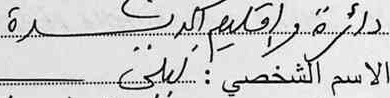 دائرة وإقليم الرشيدية
الاسم الشخصي : ليلى